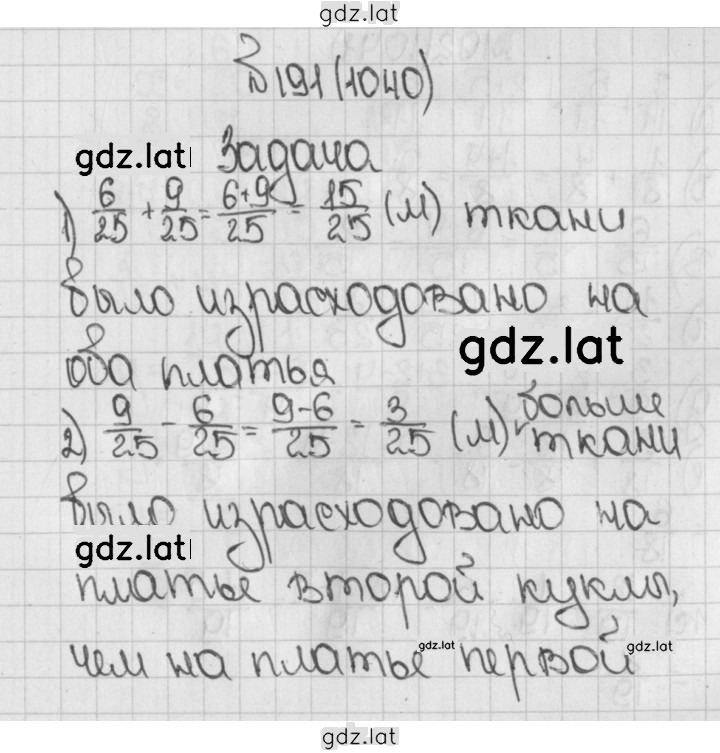 gdz.lat
№191 (1040)
gdz.lat Задача
1) 6/25 + 9/25 = 6+9/25 = 15/25 (м) ткани
было израсходовано на
gdz.lat
оба платья
2) 9/25 - 6/25 = 9-6/25 = 3/25 (м) больше
ткани
было израсходовано на
gdz.lat
платье второй куклы,
gdz.lat gdz.lat
чем на платье первой
gdz.lat